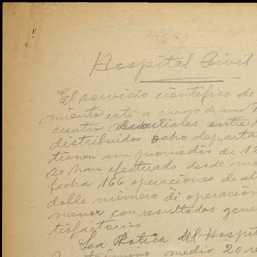 Hospital Civil
El servicio científico de
miento está a cargo de un
cuatro auxiliares entre
distribuidos ocho departa
tienen un promedio de 12
se han efectuado desde
fecha 166 operaciones de al
doble número de operación
menor con resultados gene
tisfactorios.
La Botica del Hosp
medio 20 re